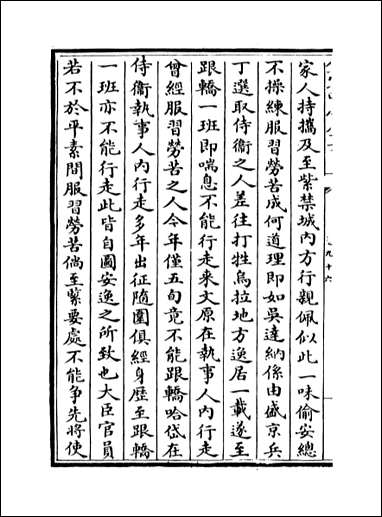 家人持攜及至紫禁城內方行親佩似此一味偷安總
不操練服習勞苦成何道理即如吳達納係由盛京兵
丁選取侍衞之人差往打牲烏拉地方逸居一載遂至
跟轎一班即喘息不能行走來文原在執事人內行走
曾經服習勞苦之人今年僅五旬竟不能跟轎哈岱在
侍衞執事人內行走多年出征隨圍俱經身歷至跟轎
一班亦不能行走此皆自圖安逸之所致也大臣官員
若不於平素間服習勞苦倘至緊要處不能爭先將使